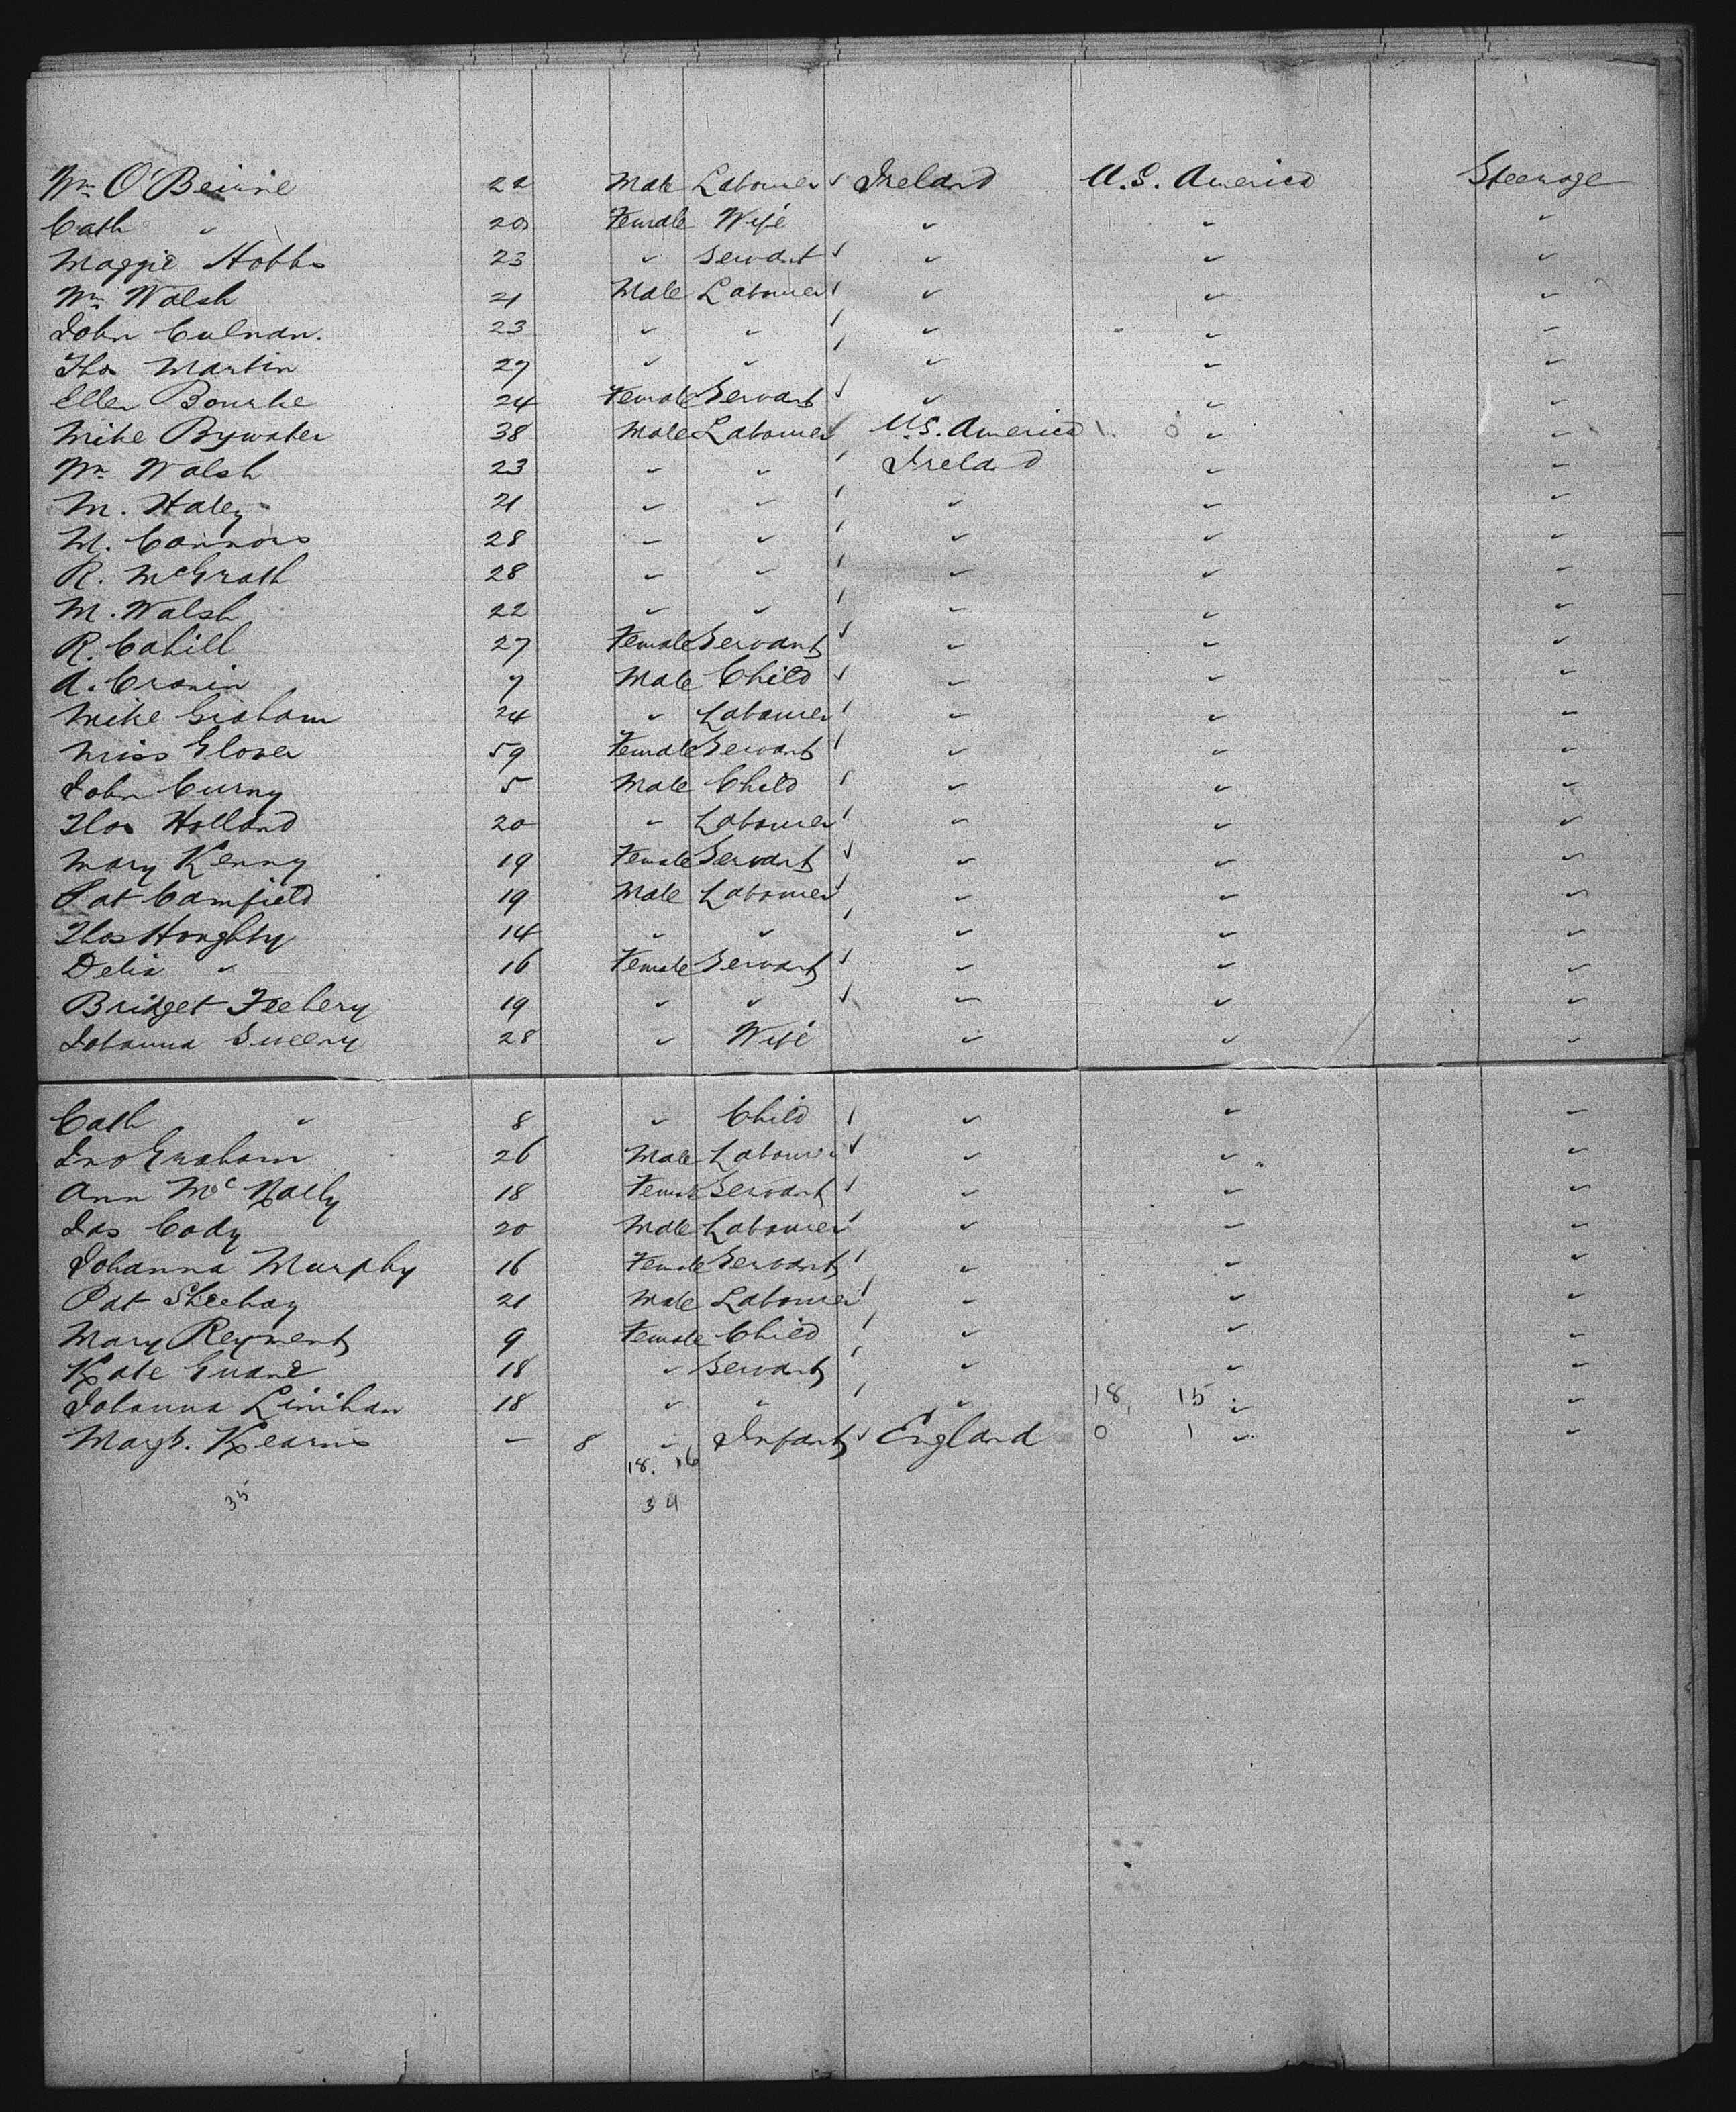 Wm O'Beirne 22 Male Labourer Ireland U.S. America Steerage
Cath " 20 Female Wife " " "
Maggie Hobbs 23 " Servant " " "
Wm Walsh 21 Male Labourer " " "
John Culnan. 23 " " " " "
Thos Martin 27 " " " " "
Ellen Bourke 24 Female Servant " " "
Mike Bywater 38 Male Labourer U.S. America 1. 0 " "
Wm Walsh 23 " " Ireland " "
M. Haley 21 " " " " "
M. Connors 28 " " " " "
R. McGrath 28 " " " " "
M. Walsh 22 " " " " "
R. Cahill 27 Female Servant " " "
A. Cronin 7 Male Child " " "
Mike Graham 24 " Labourer " " "
Miss Glover 59 Female Servant " " "
John Curny 5 Male Child " " "
Thos Holland 20 " Labourer " " "
Mary Kenny 19 Female Servant " " "
Pat Camfield 19 Male Labourer " " "
Thos Houghty 14 " " " " "
Delia " 16 Female Servant " " "
Bridget Feehery 19 " " " " "
Johanna Sweeny 28 " Wife " " "
Cath " 8 " Child " " "
Jno Graham 26 Male Labourer " " "
Ann McNally 18 Female Servant " " "
Jas Cody 20 Male Labourer " " "
Johanna Murphy 16 Female Servant " " "
Pat Sheehay 21 Male Labourer " " "
Mary Reyment 9 Female Child " " "
Kate Guane 18 " Servant " " "
Johanna Linihan 18 " " " 18, 15 " "
Margt. Kearns — 8 " Infant England 0 1 " "
18. 16
35 34